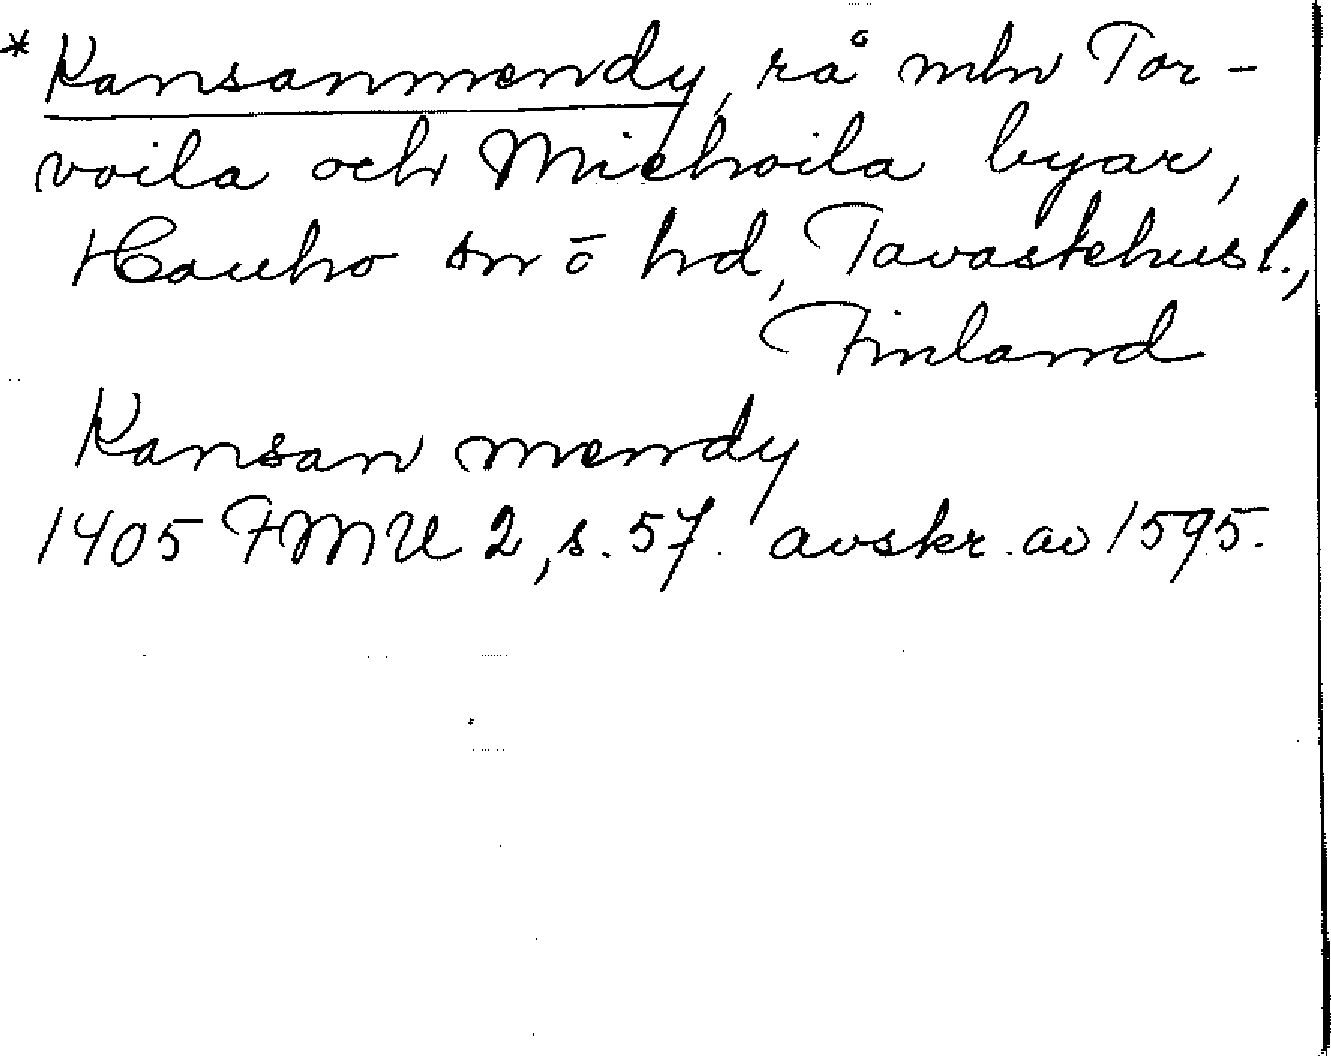 * Kansanmendy, rå mln Tor-
voila och Michoila byar,
Hauho sn o hd, Tavastehus l.,
Finland
Kansan mendy
1405 FMU 2, s. 57. avskr. av 1595.